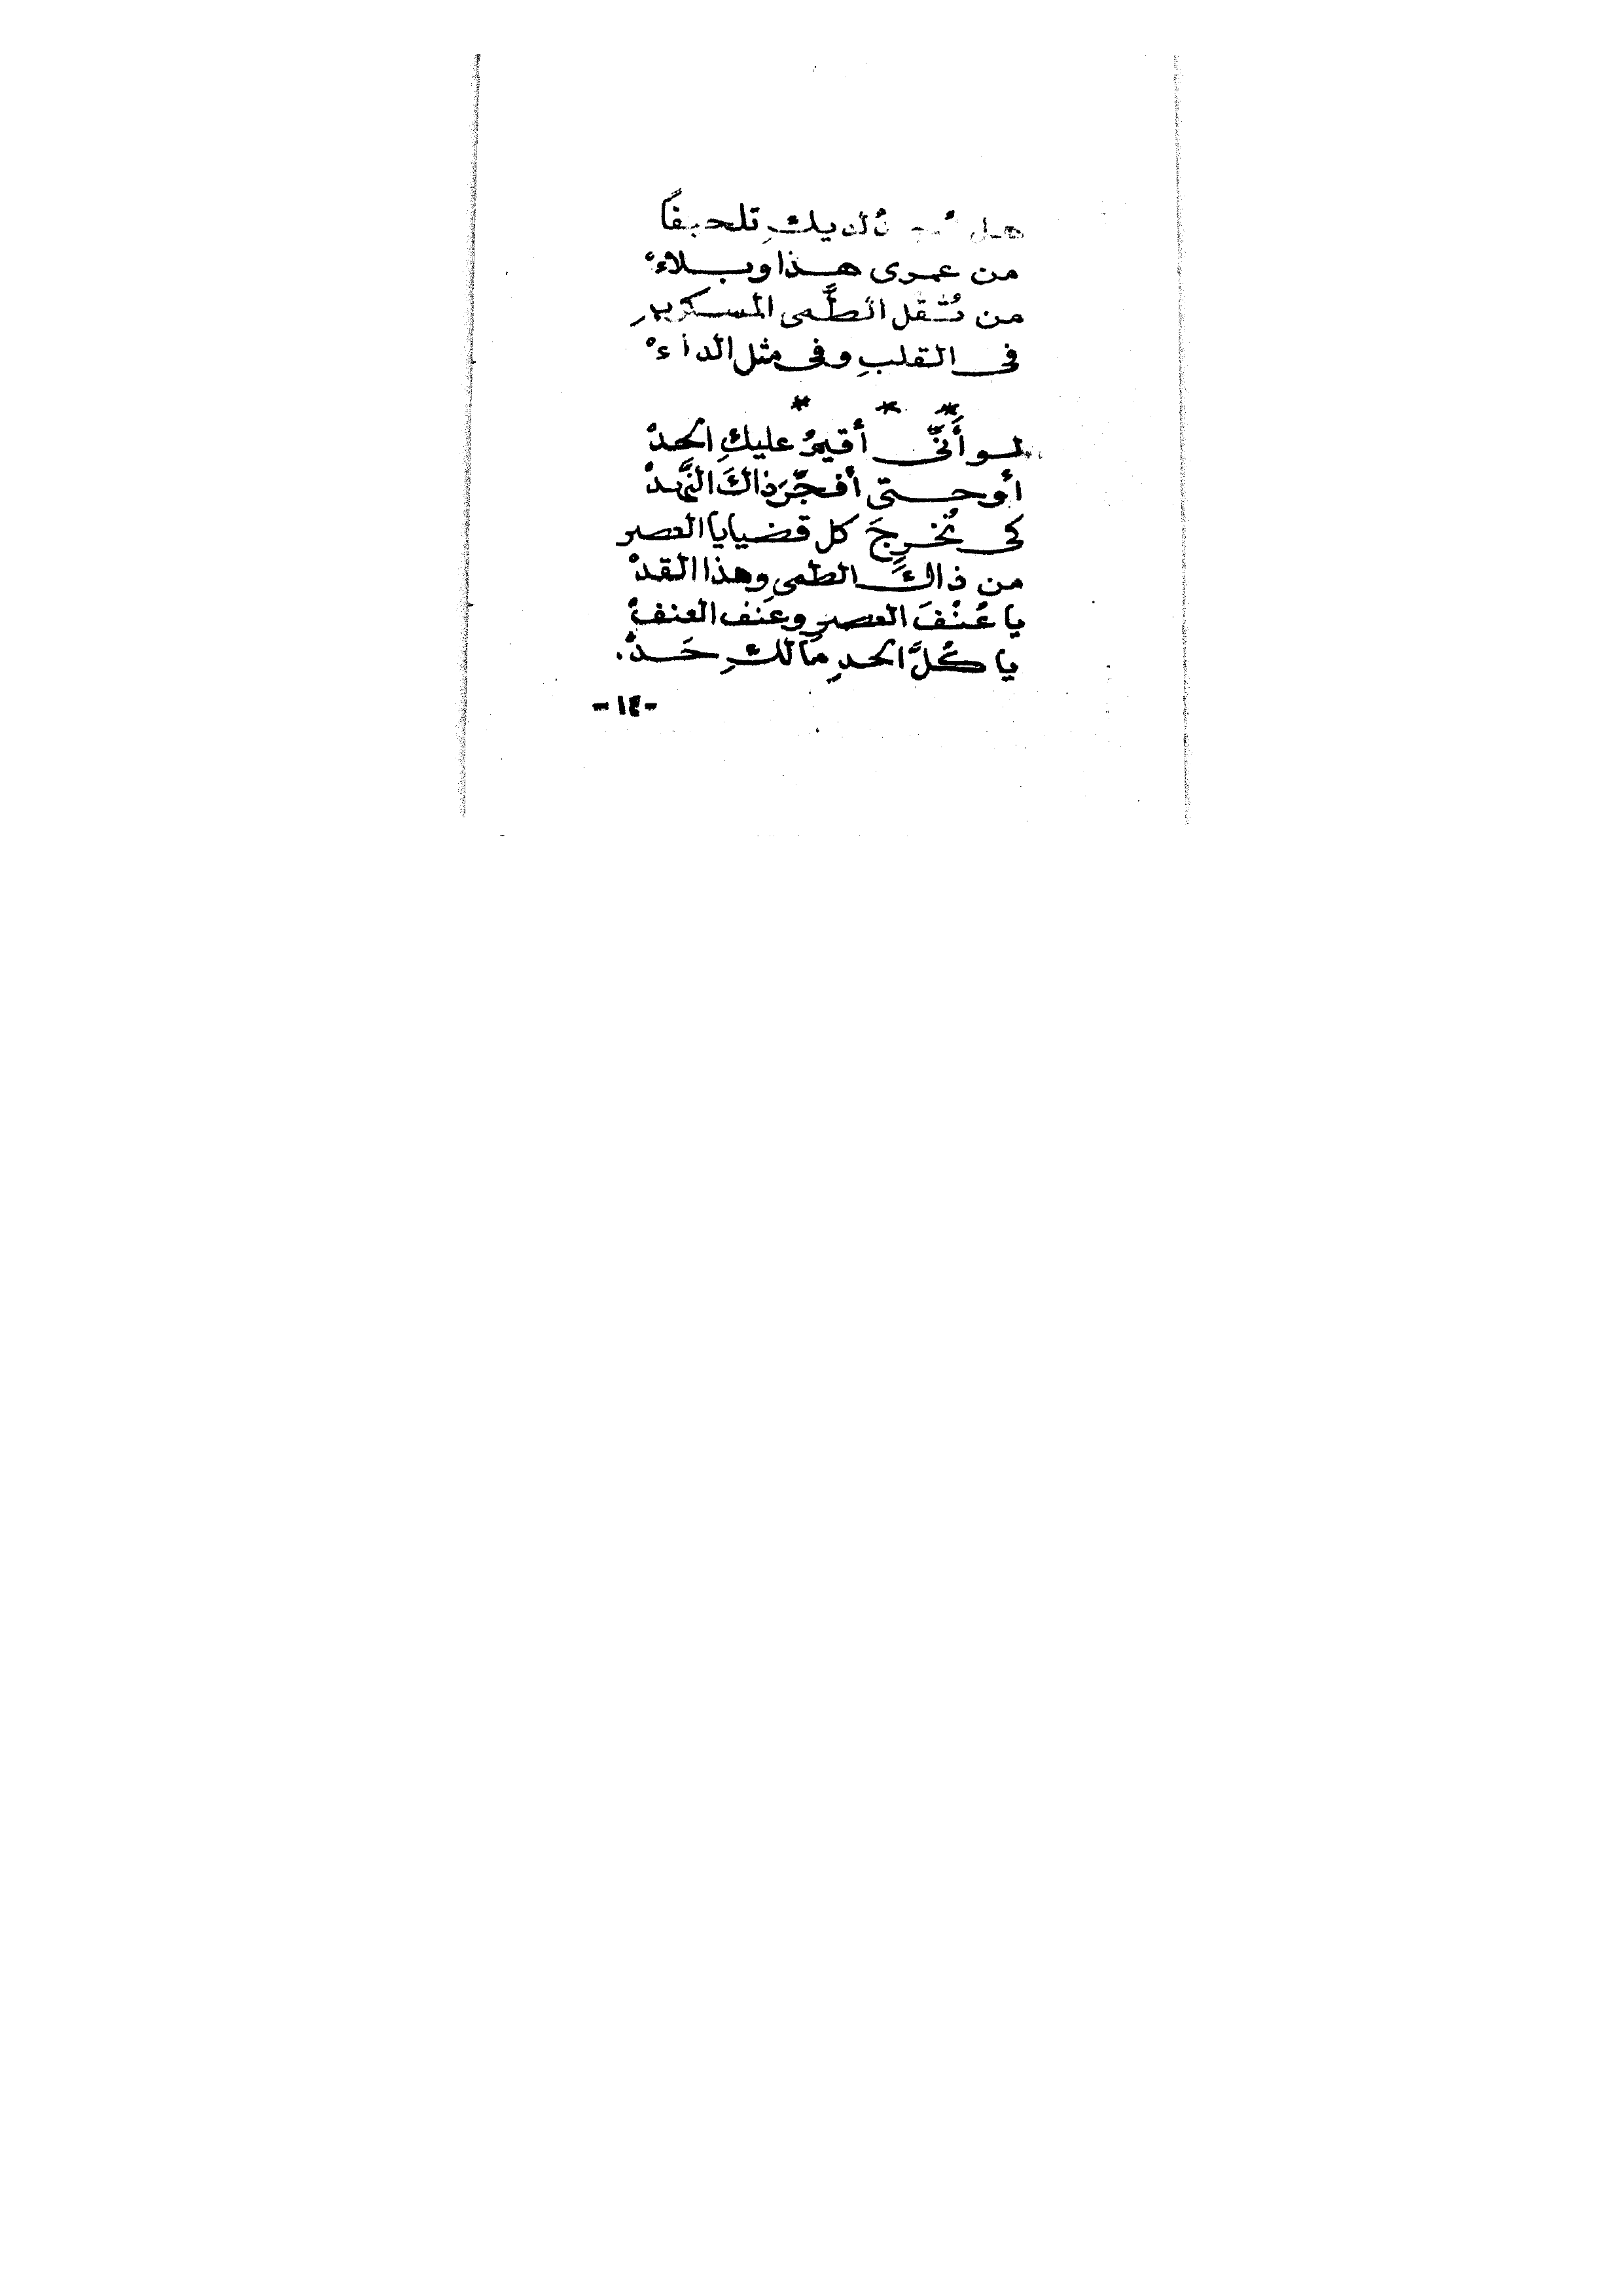 هل لديكِ تلحيفاً
من عمرى هذا وبلاءْ
من ثُقل الطَّمى المسكر
فى القلبِ وفى مثل الداءْ
* * *
لو أَنَّى أقيمُ عليكِ الحدْ
أو حتى أفجّرَ ذاكَ النَّهدْ
كى تُخرِجَ كل قضايا العصر
من ذاكَ الطمىِ وهذا القدْ
يا عُنْفَ العصرِ وعنف العنفْ
يا كُلَّ الحدِ مَالكِ حَدْ.
-١٤-